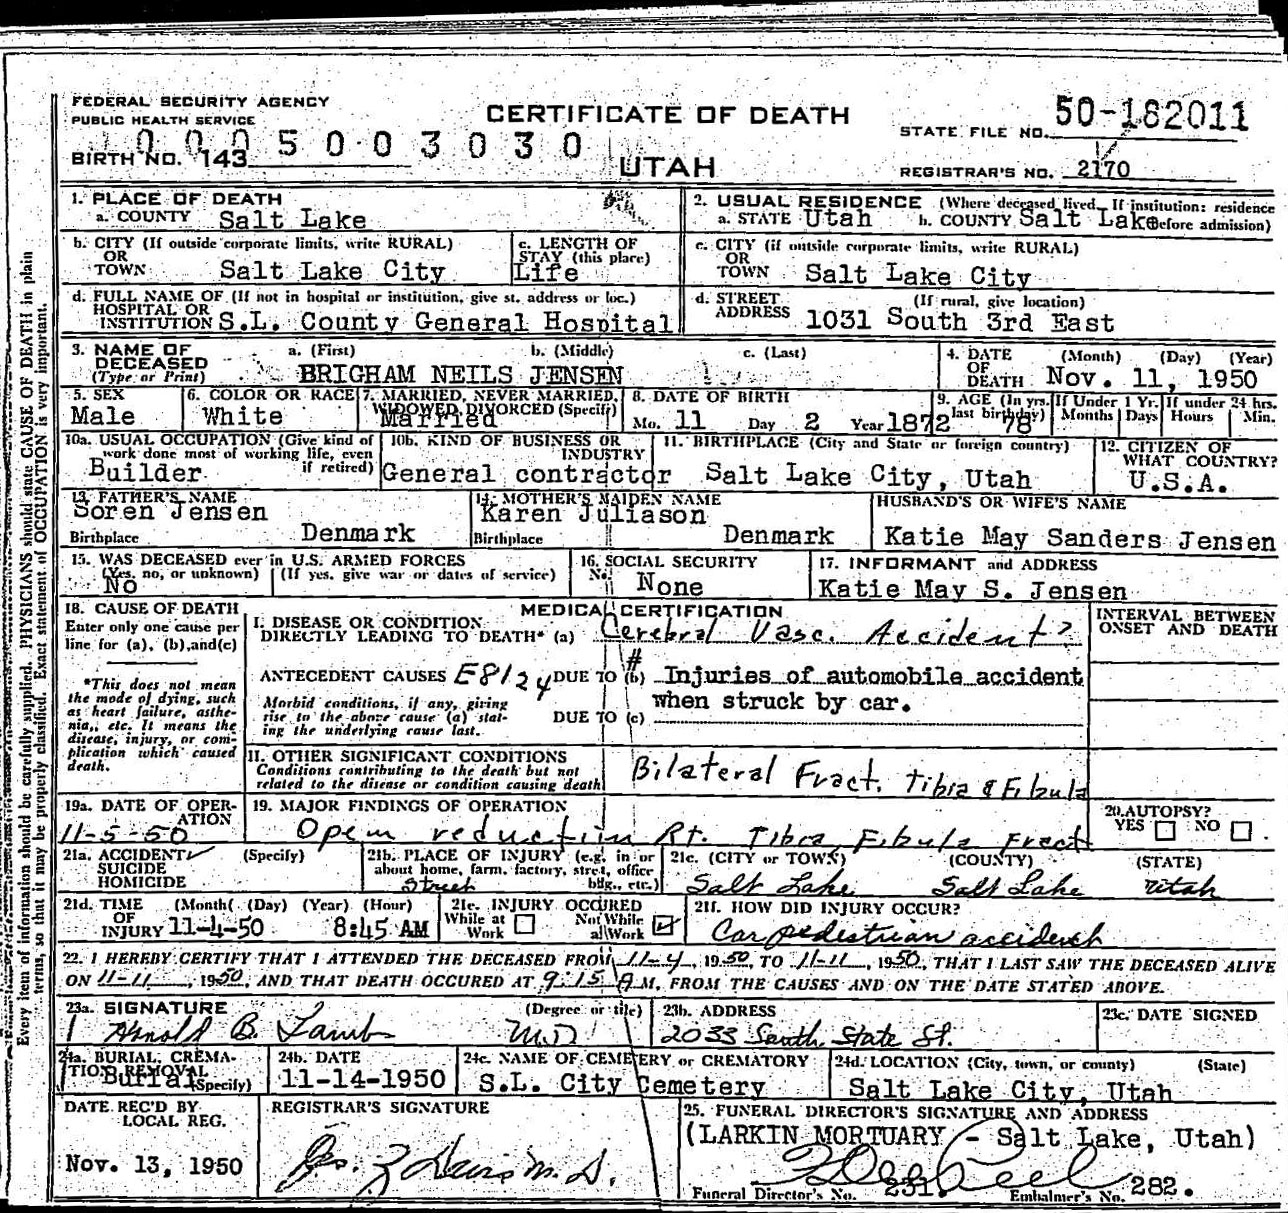 FEDERAL SECURITY AGENCY
PUBLIC HEALTH SERVICE
CERTIFICATE OF DEATH
UTAH
STATE FILE NO. 50-182011
REGISTRAR'S NO. 2170
0005003030
BIRTH NO. 143
Every item of information should be carefully supplied. PHYSICIANS should state CAUSE OF DEATH in plain
terms, so that it may be properly classified. Exact statement of OCCUPATION is very important.
1. PLACE OF DEATH
a. COUNTY Salt Lake
2. USUAL RESIDENCE (Where deceased lived. If institution: residence
before admission)
a. STATE Utah b. COUNTY Salt Lake
b. CITY (If outside corporate limits, write RURAL)
OR
TOWN Salt Lake City
c. LENGTH OF
STAY (this place)
Life
c. CITY (if outside corporate limits, write RURAL)
OR
TOWN Salt Lake City
d. FULL NAME OF (If not in hospital or institution, give st. address or loc.)
HOSPITAL OR
INSTITUTION S.L. County General Hospital
d. STREET (If rural, give location)
ADDRESS 1031 South 3rd East
3. NAME OF a. (First) b. (Middle) c. (Last)
DECEASED
(Type or Print) BRIGHAM NEILS JENSEN
4. DATE (Month) (Day) (Year)
OF
DEATH Nov. 11, 1950
5. SEX
Male
6. COLOR OR RACE
White
7. MARRIED, NEVER MARRIED,
WIDOWED DIVORCED (Specify)
Married
8. DATE OF BIRTH
Mo. 11 Day 2 Year 1872
9. AGE (In yrs. last birthday) If Under 1 Yr. If under 24 hrs.
78 Months Days Hours Min.
10a. USUAL OCCUPATION (Give kind of
work done most of working life, even
if retired)
Builder
10b. KIND OF BUSINESS OR
INDUSTRY
General contractor
11. BIRTHPLACE (City and State or foreign country)
Salt Lake City, Utah
12. CITIZEN OF
WHAT COUNTRY?
U.S.A.
13. FATHER'S NAME
Soren Jensen
Birthplace Denmark
14. MOTHER'S MAIDEN NAME
Karen Juliason
Birthplace Denmark
HUSBAND'S OR WIFE'S NAME
Katie May Sanders Jensen
15. WAS DECEASED ever in U.S. ARMED FORCES
(Yes, no, or unknown) (If yes, give war or dates of service)
No
16. SOCIAL SECURITY
No. None
17. INFORMANT and ADDRESS
Katie May S. Jensen
18. CAUSE OF DEATH
Enter only one cause per
line for (a), (b), and (c)
*This does not mean
the mode of dying, such
as heart failure, asthe-
nia, etc. It means the
disease, injury, or com-
plication which caused
death.
MEDICAL CERTIFICATION
INTERVAL BETWEEN
ONSET AND DEATH
I. DISEASE OR CONDITION
DIRECTLY LEADING TO DEATH* (a) Cerebral Vasc. Accident?
ANTECEDENT CAUSES E8124 DUE TO (b) # Injuries of automobile accident
when struck by car.
Morbid conditions, if any, giving
rise to the above cause (a) stat-
ing the underlying cause last.
DUE TO (c)
II. OTHER SIGNIFICANT CONDITIONS
Conditions contributing to the death but not
related to the disease or condition causing death
Bilateral Fract. Tibia & Fibula
19a. DATE OF OPER-
ATION
11-5-50
19. MAJOR FINDINGS OF OPERATION
Open reduction Rt. Tibia, Fibula Fract
20. AUTOPSY?
YES NO
21a. ACCIDENT ✓ (Specify)
SUICIDE
HOMICIDE
21b. PLACE OF INJURY (e.g. in or
about home, farm, factory, street, office
bldg., etc.)
Street
21c. (CITY or TOWN) (COUNTY) (STATE)
Salt Lake Salt Lake Utah
21d. TIME (Month) (Day) (Year) (Hour)
OF
INJURY 11-4-50 8:45 AM
21e. INJURY OCCURED
While at Work Not While at Work ✓
21f. HOW DID INJURY OCCUR?
Car pedestrian accident
22. I HEREBY CERTIFY THAT I ATTENDED THE DECEASED FROM 11-4, 1950, TO 11-11, 1950, THAT I LAST SAW THE DECEASED ALIVE
ON 11-11, 1950, AND THAT DEATH OCCURED AT 9:15 A M, FROM THE CAUSES AND ON THE DATE STATED ABOVE.
23a. SIGNATURE (Degree or title)
Arnold B. Lamb M.D
23b. ADDRESS
2033 South State St.
23c. DATE SIGNED
24a. BURIAL, CREMA-
TION REMOVAL
(Specify)
Burial
24b. DATE
11-14-1950
24c. NAME OF CEMETERY or CREMATORY
S.L. City Cemetery
24d. LOCATION (City, town, or county) (State)
Salt Lake City, Utah
DATE REC'D BY
LOCAL REG.
Nov. 13, 1950
REGISTRAR'S SIGNATURE
M.D.
25. FUNERAL DIRECTOR'S SIGNATURE AND ADDRESS
(LARKIN MORTUARY - Salt Lake, Utah)
Funeral Director's No. 231. Embalmer's No. 282.